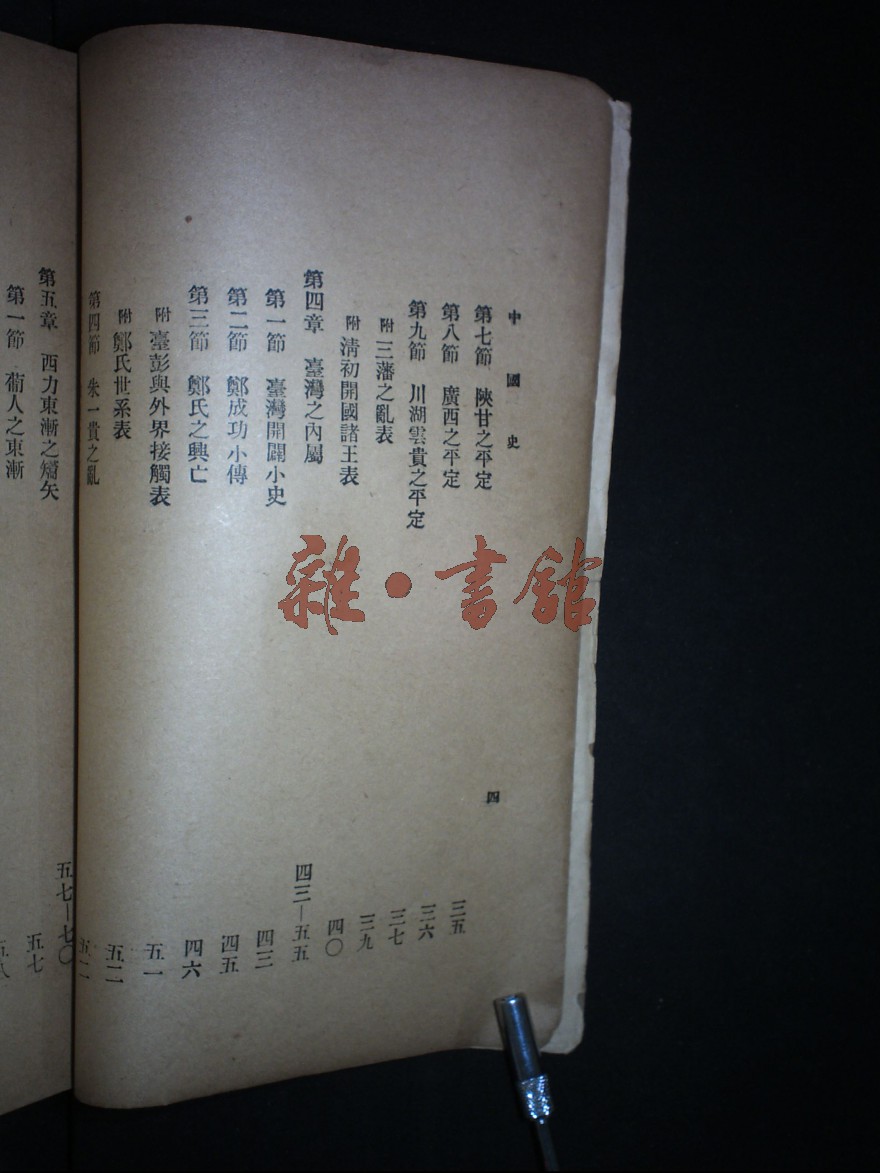 中國史
四
第七節 陝甘之平定 三五
第八節 廣西之平定 三六
第九節 川湖雲貴之平定 三七
附 三藩之亂表 三九
附 淸初開國諸王表 四〇
第四章 臺灣之內屬 四三—五五
第一節 臺灣開闢小史 四三
第二節 鄭成功小傳 四五
第三節 鄭氏之興亡 四六
附 臺彭與外界接觸表 五一
附 鄭氏世系表 五二
第四節 朱一貴之亂
第五章 西力東漸之嚆矢 五七—七〇
第一節 葡人之東漸 五七
五八
雜·書館